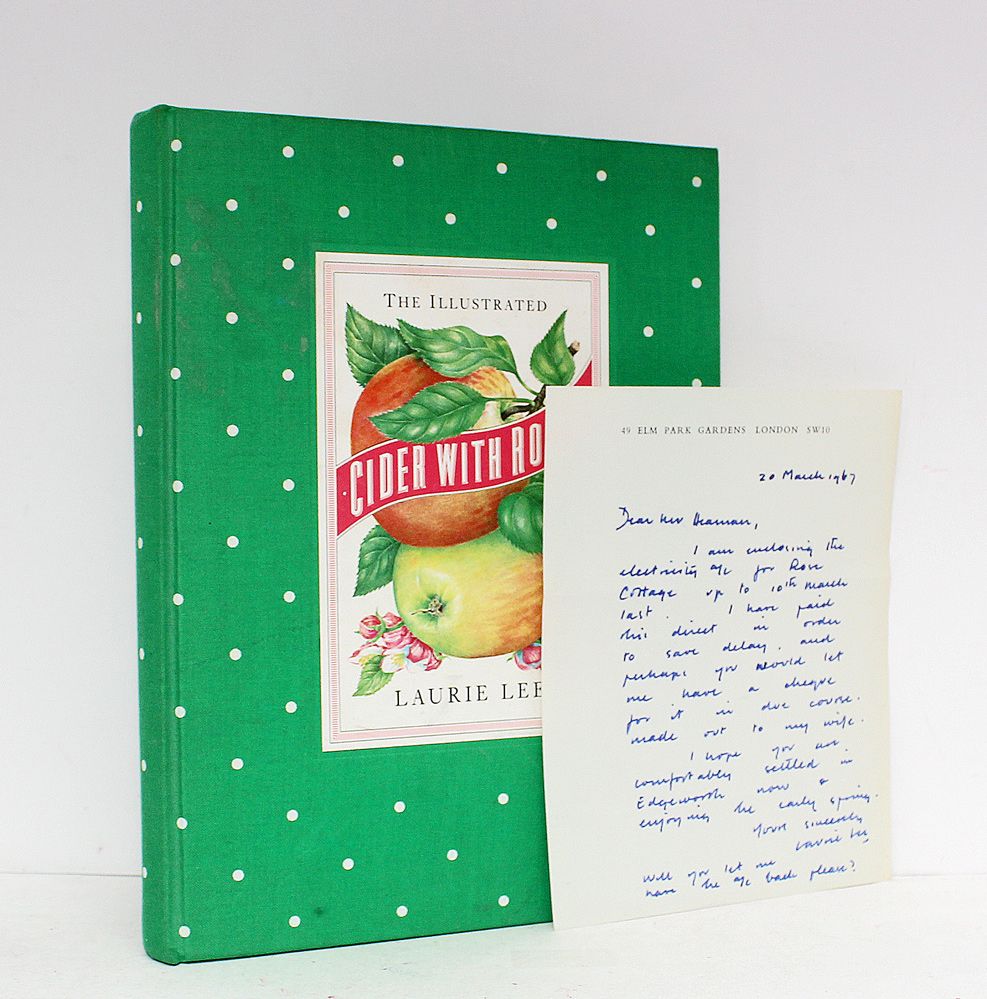 THE ILLUSTRATED
CIDER WITH RO
LAURIE LEE
49 ELM PARK GARDENS LONDON SW10
20 March 1967
Dear Mr
I am enclosing the
electricity a/c for Rose
Cottage up to 10th March
last. I have paid
this direct in order
to save delay, and
perhaps you would let
me have a cheque
for it in due course.
made out to my wife.
I hope you are
comfortably settled in
Edgeworth now &
enjoying the early spring.
Yours sincerely
Laurie Lee
Will you let me
have the a/c back please?